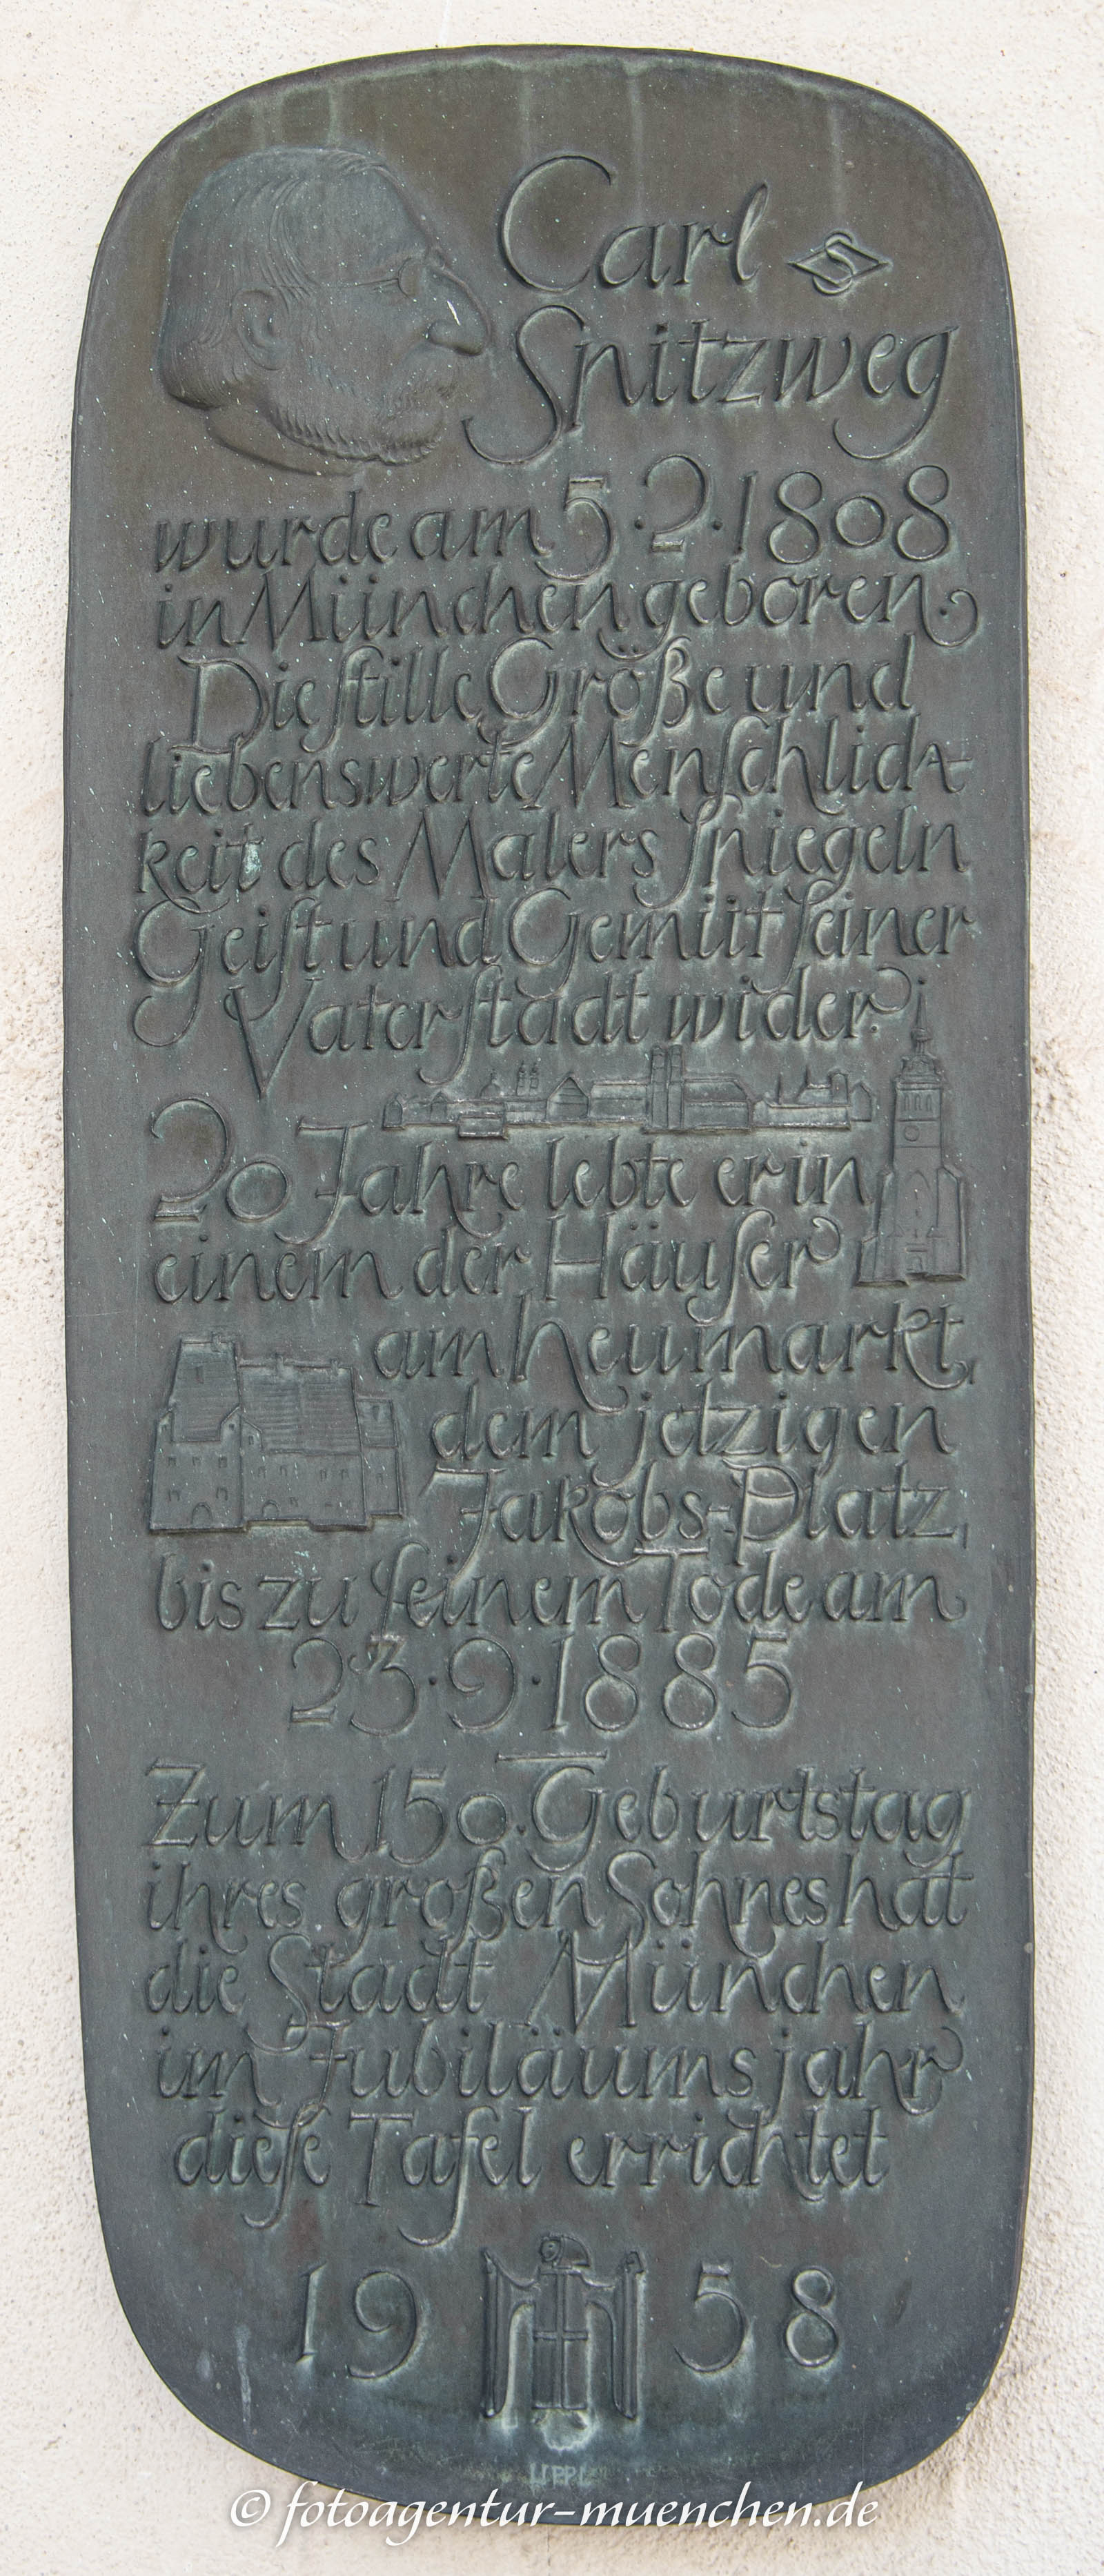 Carl S
Spitzweg
wurde am 5.2.1808
in München geboren.
Die ſtille Größe und
liebenswerte Menſchlich-
keit des Malers ſpiegeln
Geiſt und Gemüt ſeiner
Vaterſtadt wider.
20 Jahre lebte er in
einem der Häuſer
am heumarkt,
dem jetzigen
Jakobs-Platz,
bis zu ſeinem Tode am
23.9.1885
Zum 150. Geburtstag
ihres großen Sohnes hat
die Stadt München
im Jubiläumsjahr
dieſe Tafel errichtet
19 M 58
LIPPL
© fotoagentur-muenchen.de